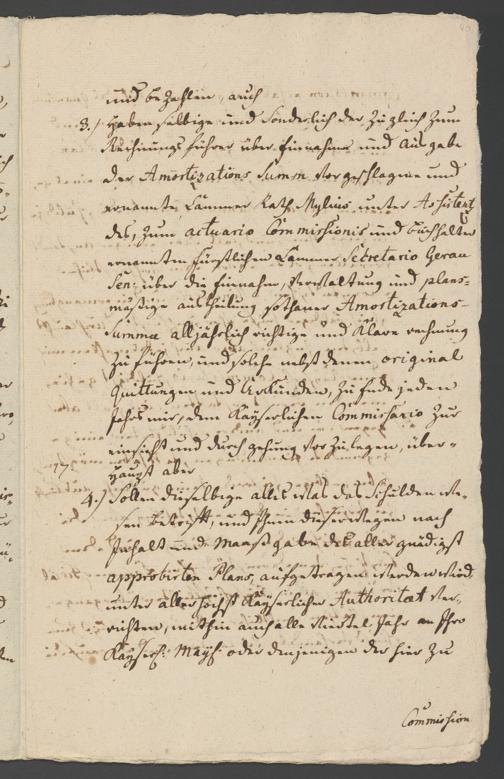 und bezahlen, auch
3.) Haben selbige und sonderlich der zugleich zum
Rechnungsführer über Einnahme und Ausgabe
der Amortizations Summ vorgeschlagene und
ernannte Cammer Rath Mylius unter Assistenz
des, zum actuario Commissionis und buchhalter
ernannten fürstlichen Cammer Secretario Gerau
Sen: über die Einnahm, Verwaltung und plans-
mäßige austheilung sothaner Amortizations-
Summa alljährlich richtige und klare rechnung
zu führen, und solche nebst denen original
Quittungen und Urkunden, zu Ende jeden
Jahrs mir, dem Kayserlichen Commissario zur
einsicht und durchgehung vorzulegen, über-
haupt aber
4.) Sollen dieselbige alles was das Schulden we-
sen betrifft, und Ihnen dieserwegen nach
Inhalt und Maasgabe des allergnädigst
approbirten Plans, aufgetragen werden wird
unter allerhöchst Kayserlicher Authoritæt ver-
richten, mithin auch alle viertel Jahr an Ihro
Kayserl: Mays: oder denjenigen der hier zu
Commission